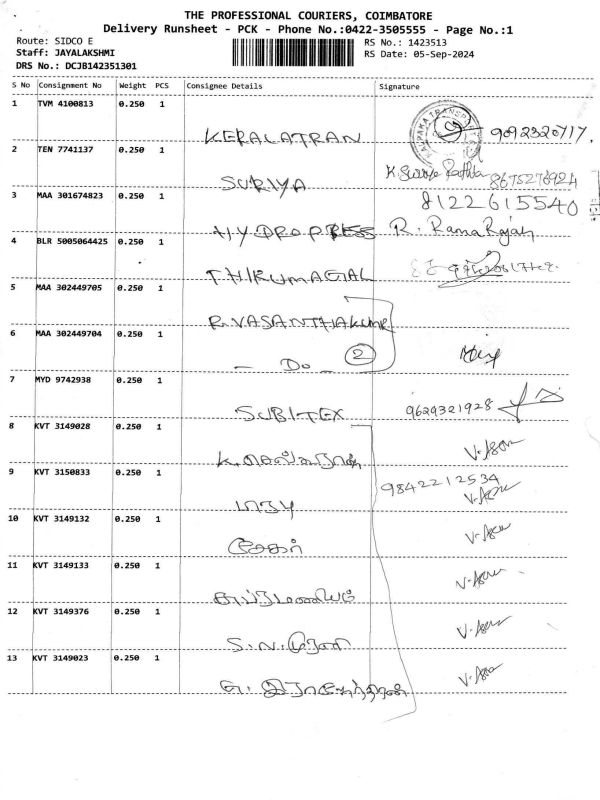 THE PROFESSIONAL COURIERS, COIMBATORE
Delivery Runsheet - PCK - Phone No.:0422-3505555 - Page No.:1
Route: SIDCO E RS No.: 1423513
Staff: JAYALAKSHMI RS Date: 05-Sep-2024
DRS No.: DCJB142351301
S No Consignment No Weight PCS Consignee Details Signature
1 TVM 4100813 0.250 1
KERALATRAN 9092320717.
2 TEN 7741137 0.250 1
SURIYA 8675276924
3 MAA 301674823 0.250 1 8122615540
HYDROPRESS R. RamaRajan
4 BLR 5005064425 0.250 1
THIRUMAGAL
5 MAA 302449705 0.250 1
R.VASANTHAKUMR
6 MAA 302449704 0.250 1
- Do - 2
7 MYD 9742938 0.250 1
SUBITEX 9629321928
8 KVT 3149028 0.250 1
9 KVT 3150833 0.250 1 9842212534
10 KVT 3149132 0.250 1
சேகர்
11 KVT 3149133 0.250 1
12 KVT 3149376 0.250 1
13 KVT 3149023 0.250 1